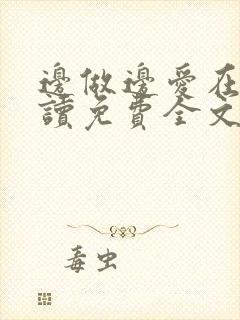 邊做邊愛在
讀免費全文
毒虫